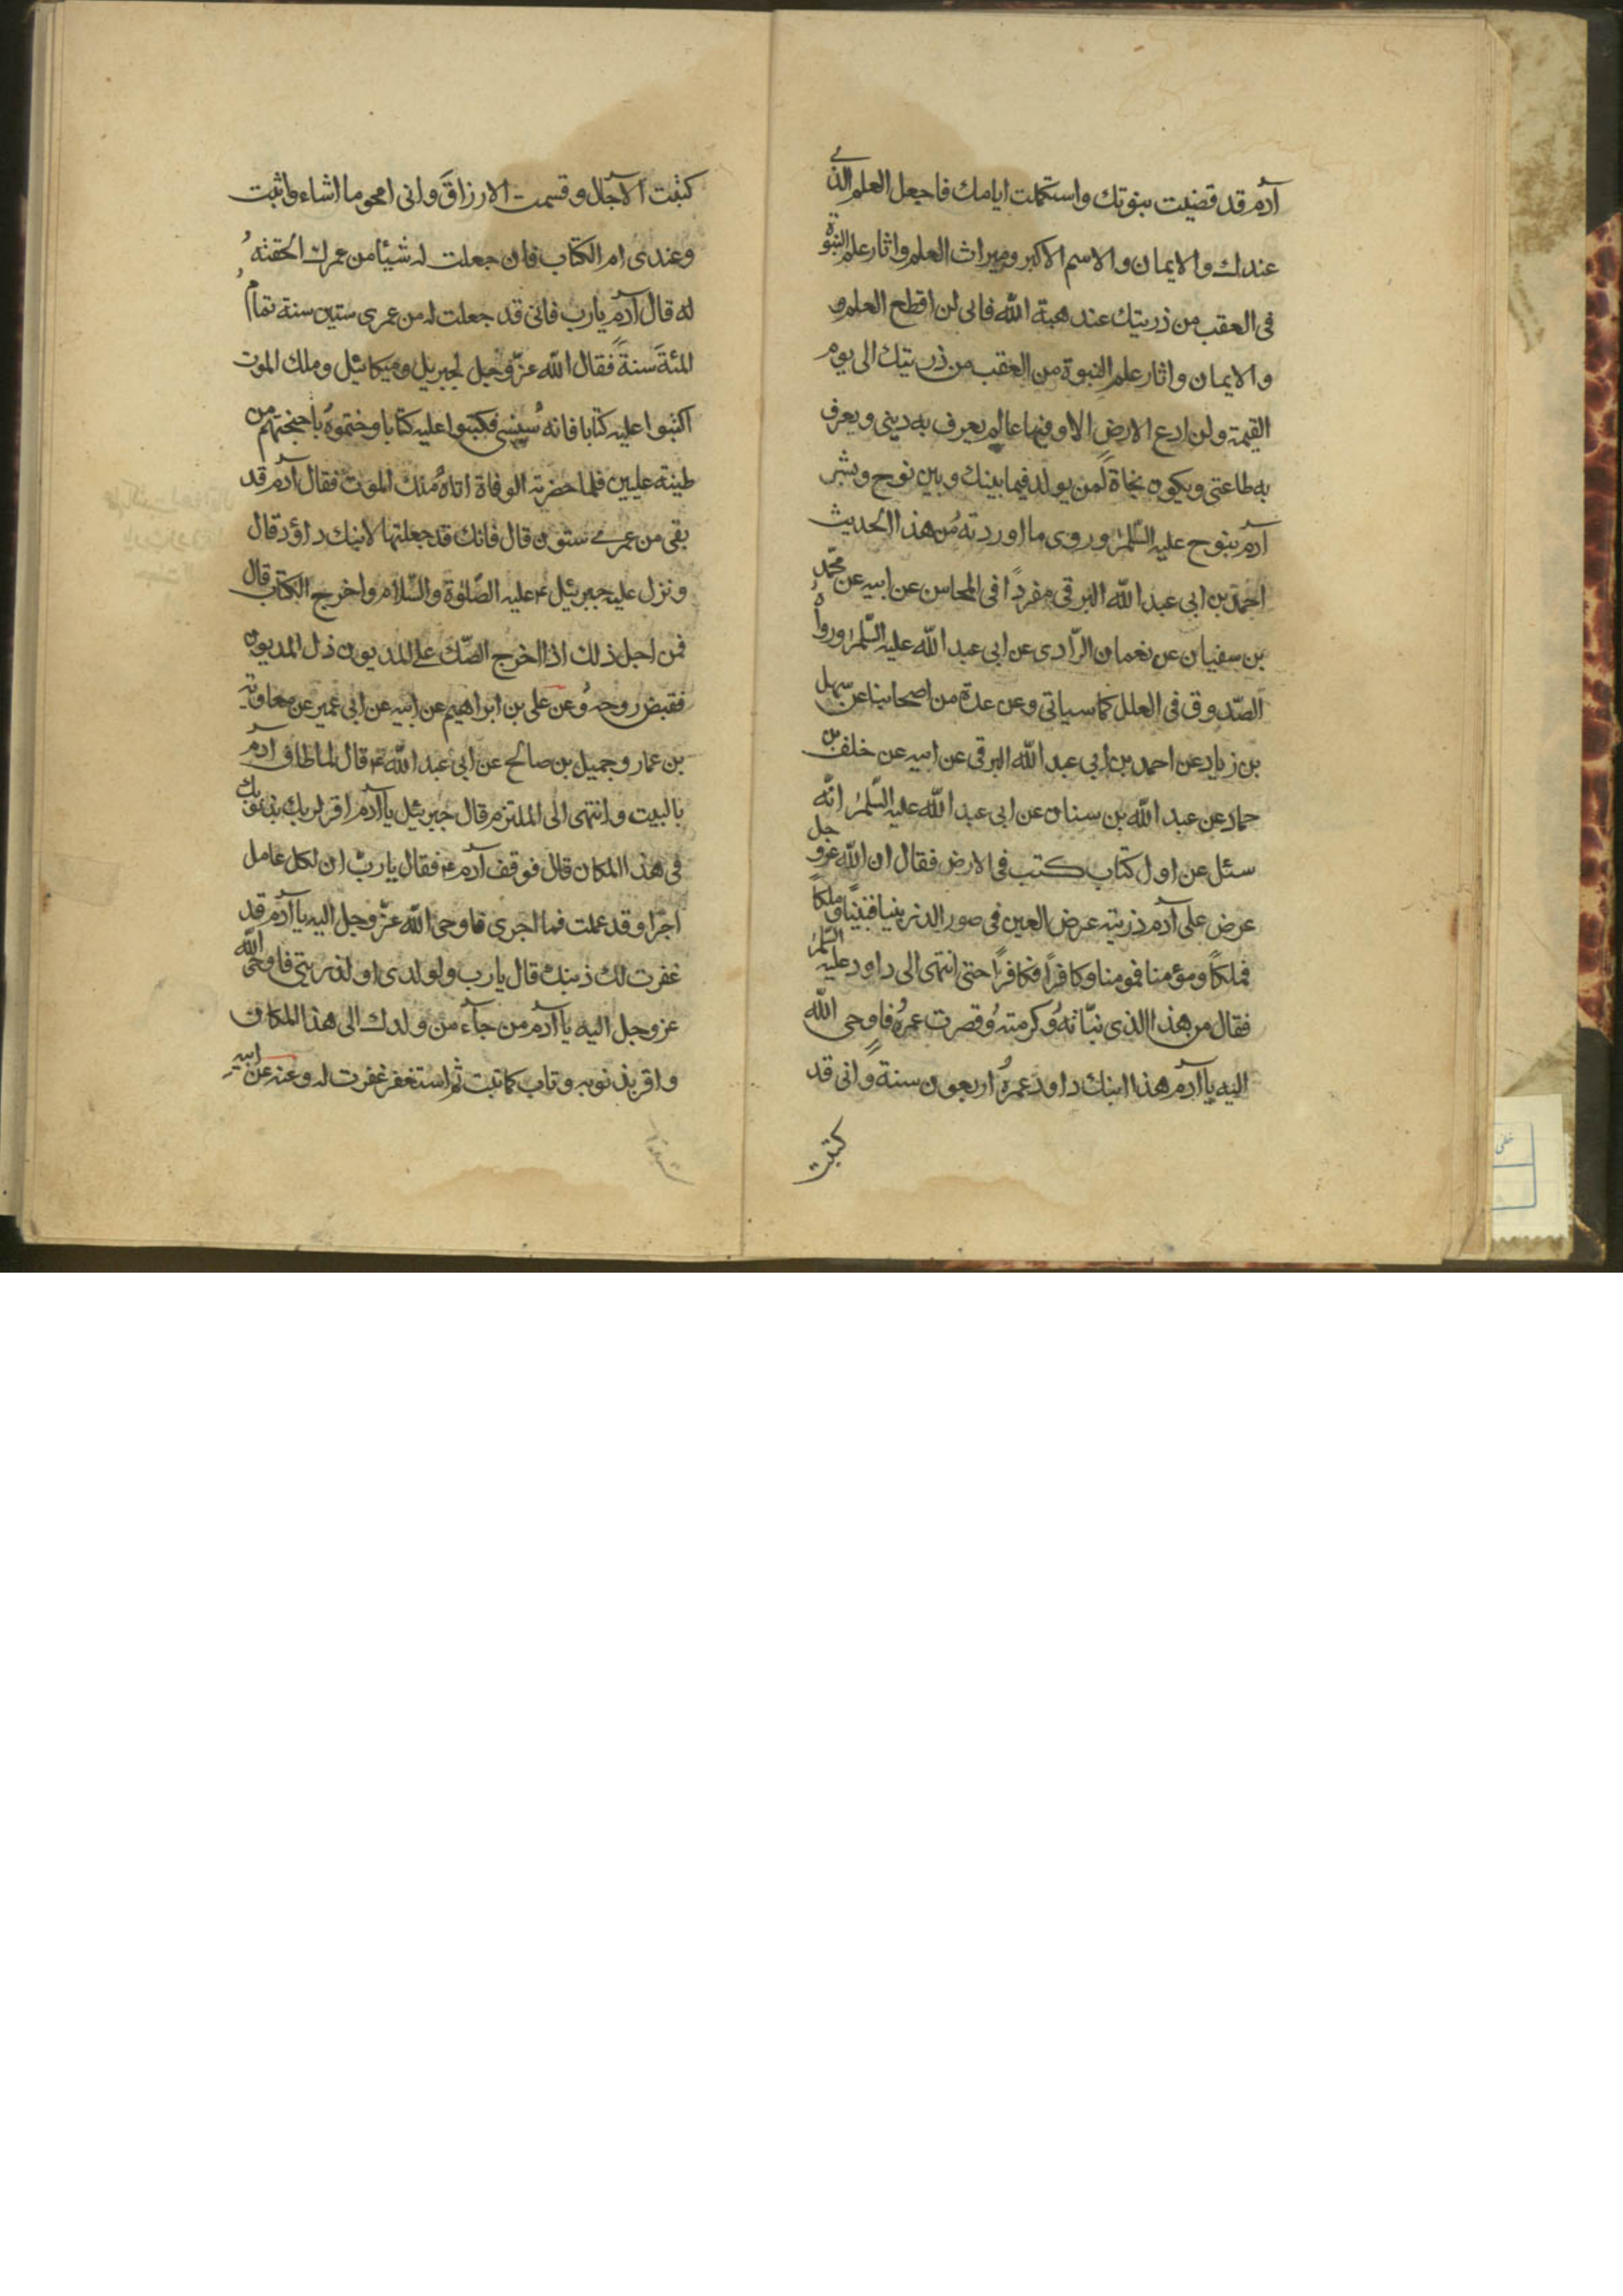 آدم قد قضيت بنوتك واستكملت ايامك فاجعل العلم الذي
عندك والايمان والاسم الاكبر وميراث العلم واثار علم النبوة
فى العقب من ذريتك عند هبة الله فانى لن اقطع العلم و
والايمان واثار علم النبوة من العقب من ذريتك الى يوم
القيمة ولن ادع الارض الا وفيها عالم يعرف به دينى ويعرف
به طاعتى ويكون نجاة لمن يولد فيما بينك وبين نوح وبشر
آدم بنوح عليه السّلم وروى ما اوردته من هذا الحديث
احمد بن ابى عبد الله البرقى مفرداً فى المحاسن عن ابيه عن محمّد
بن سفيان عن نعمان الرّادى عن ابى عبد الله عليه السّلم ورواه
الصّدوق فى العلل كما سياتى وعن عدة من اصحابنا عن سهل
بن زياد عن احمد بن ابى عبد الله البرقى عن ابيه عن خلف بن
حماد عن عبد الله بن سنان عن ابى عبد الله عليه السّلم انّه
سئل عن اول كتاب كتب فى الارض فقال ان الله عزو جل
عرض على آدم ذريته عرض العين فى صور الذر نبيا فنبيّا وملكاً
فملكاً ومؤمنا فمومنا وكافراً فكافراً حتى انتهى الى داود عليه السّلم
فقال من هذا الذى نبّاته وكرمته وقصرت عمره فاوحى الله
اليه يا آدم هذا ابنك داود عمره اربعون سنة وانى قد
كتبت
كتبت الآجال و قسمت الارزاق وانى امحو ما اشاء واثبت
وعندى ام الكتاب فان جعلت له شيئا من عمرك الحقته
له قال آدم يارب فانى قد جعلت له من عمرى ستين سنة تمام
المئة سنة فقال الله عزّ وجل لجبريل وميكائيل وملك الموت
اكتبوا عليه كتابا فانه سينسى فكتبوا عليه كتابا وختموه باجنحتهم من
طينة عليين فلما حضرته الوفاة اتاه ملك الموت فقال آدم قد
بقى من عمرى ستون قال فانك قد جعلتها لابنك داؤد قال
ونزل عليه جبرئيل ع عليه الصّلوة والسّلام واخرج الكتاب قال
فمن اجل ذلك اذا اخرج الصّك على المديون ذل المديون
فقبض روحه وعن على بن ابراهيم عن ابيه عن ابى عمير عن معاوية
بن عمار وجميل بن صالح عن ابى عبد الله ع قال لما طاف آدم
بالبيت وانتهى الى الملتزم قال جبرئيل يا آدم اقر لربك بذنوبك
فى هذا المكان قال فوقف آدم ع فقال يا ربّ ان لكل عامل
اجرا وقد عملت فما اجرى فاوحى الله عزّ وجل اليه يا آدم قد
غفرت لك ذنبك قال يا رب ولولدى او لذريتى فاوحى الله
عز وجل اليه يا آدم من جآء من ولدك الى هذا المكان
واقر بذنوبه وتاب كما تبت ثم استغفر غفرت له وعنه عن ابيه